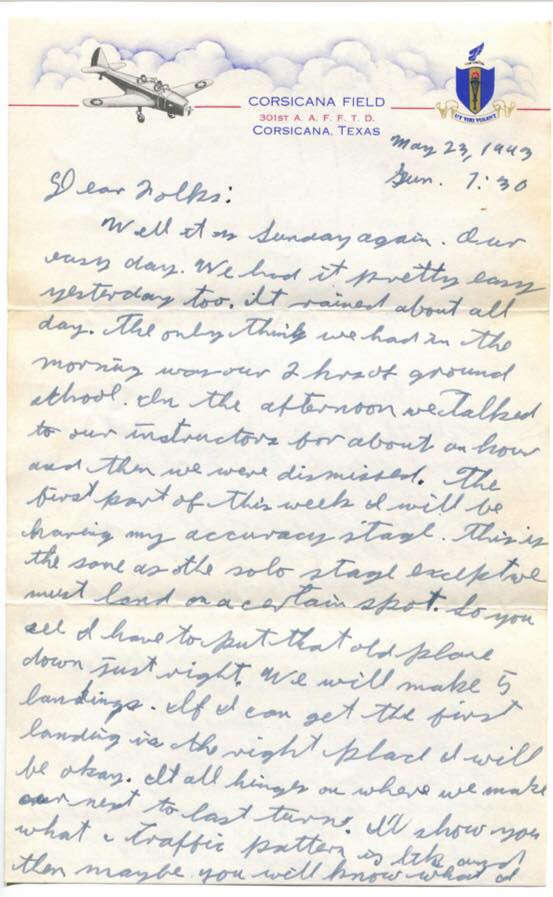 CORSICANA FIELD
301ST A. A. F. F. T. D.
CORSICANA, TEXAS
UT VIRI VOLENT
May 23, 1943
Sun. 7:30
Dear Folks:
Well it is Sunday again. Our
easy day. We had it pretty easy
yesterday too. It rained about all
day. The only think we had in the
morning was our 2 hrs of ground
school. In the afternoon we talked
to our instructors for about an hour
and then we were dismissed. The
first part of this week I will be
having my accuracy stage. This is
the same as the solo stage except we
must land on a certain spot. So you
see I have to put that old plane
down just right. We will make 5
landings. If I can get the first
landing in the right place I will
be okay. It all hinges on where we make
our next to last turn. I'll show you
what a traffic pattern is like and
then maybe you will know what I